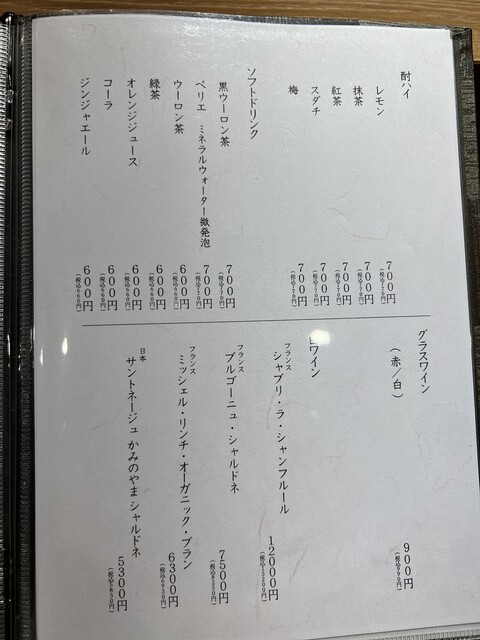 酎ハイ
レモン 700円
(税込770円)
抹茶 700円
(税込770円)
紅茶 700円
(税込770円)
スダチ 700円
(税込770円)
梅 700円
(税込770円)
ソフトドリンク
黒ウーロン茶 700円
(税込770円)
ペリエ ミネラルウォーター微発泡 700円
(税込770円)
ウーロン茶 600円
(税込660円)
緑茶 600円
(税込660円)
オレンジジュース 600円
(税込660円)
コーラ 600円
(税込660円)
ジンジャエール 600円
(税込660円)
グラスワイン
(赤/白) 900円
(税込990円)
白ワイン
フランス
シャブリ・ラ・シャンフルール 12000円
(税込13200円)
フランス
ブルゴーニュ・シャルドネ 7500円
(税込8250円)
フランス
ミッシェル・リンチ・オーガニック・ブラン 6300円
(税込6930円)
日本
サントネージュ かみのやま シャルドネ 5300円
(税込5830円)